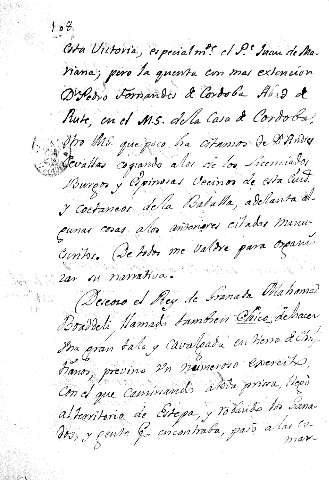 108
esta Victoria, especialm.te el P.e Juan de Ma-
riana; pero la quenta con mas extencion
D.n Pedro Fernandes de Cordoba Abad de
Rute, en el M.S. de la Casa de Cordoba;
otro MS. que poco ha citamos de D.n Andres
Cevallas copiando a los de los Licenciados
Burgos y Espinosas Vecinos de esta Ciud.
y coetaneos de la Batalla, adelanta al-
gunas cosas a los anteriores citados Manu-
scritos. De todos me valdre para organi-
zar su narrativa.
Deseoso el Rey de Granada Mahomad
Boaddeli, llamado tambien Chico, de hacer
una gran tala y Cavalgada en tierra de Chris-
tianos, previno un numeroso exercito,
con el que caminando a toda prisa, llegó
al territorio de Estepa, y robando los Gana-
dos, y gente q.e encontraba, pasó a las co-
mar-